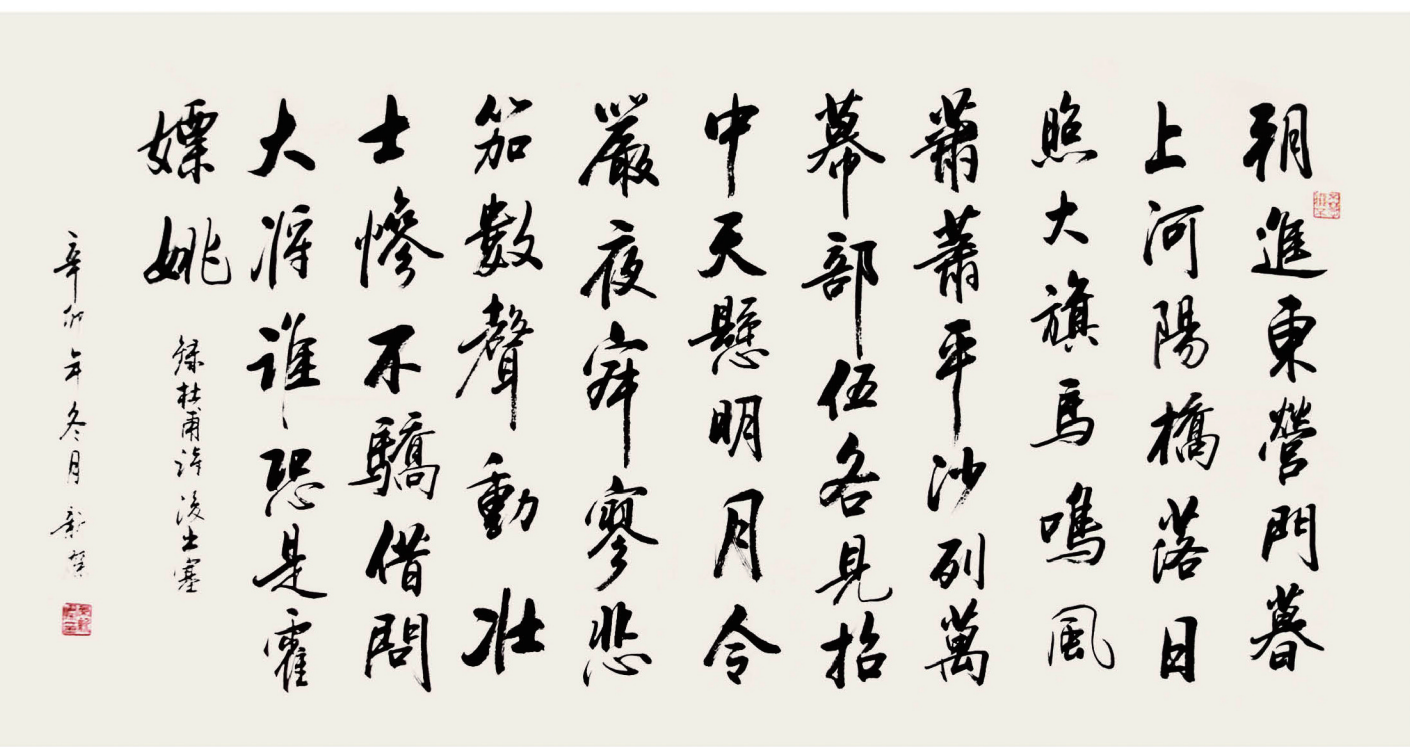 朝進東營門暮
上河陽橋落日
照大旗馬鳴風
蕭蕭平沙列萬
幕部伍各見招
中天懸明月令
嚴夜寂寥悲
笳數聲動壯
士慘不驕借問
大將誰恐是霍
嫖姚
錄杜甫詩後出塞
辛卯年冬月